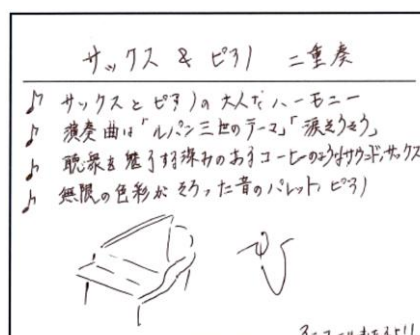 サックス & ピアノ 二重奏
サックスとピアノの大人なハーモニー
演奏曲は「ルパン三世のテーマ」「涙そうそう」
聴衆を魅了する深みのあるコーヒーのようなサウンド、サックス
無限の色彩がそろった音のパレット、ピアノ